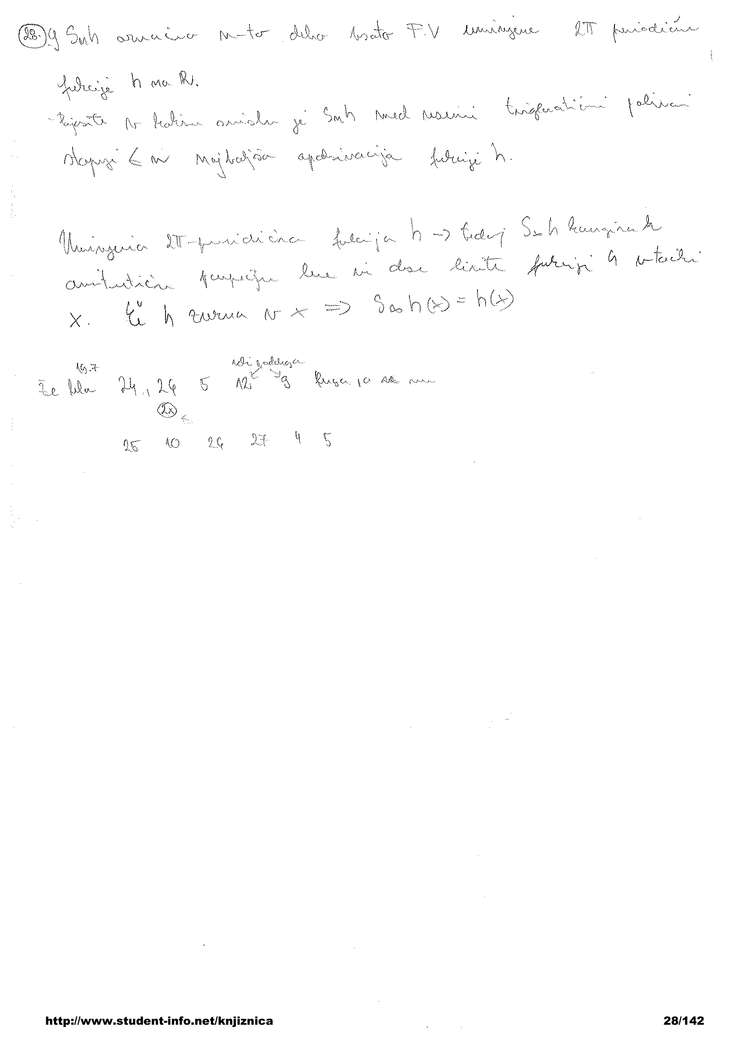 28. g) Snh označimo n-to delno vsoto F.V 2π periodične
funkcije h na R.
v kakšnem smislu je Snh med vsemi trigonometričnimi polinomi
stopnje ≤ n najboljša aproksimacija funkcije h.
2π-periodična funkcija h → tedaj Snh konvergira k
aritmetični leve in desne limite funkcije h v točki
x. Če h zvezna v x ⇒ S∞h(x) = h(x)
19.7
Že bila 24, 24 5 12 9
2x
25 10 24 27 4 5
http://www.student-info.net/knjiznica 28/142